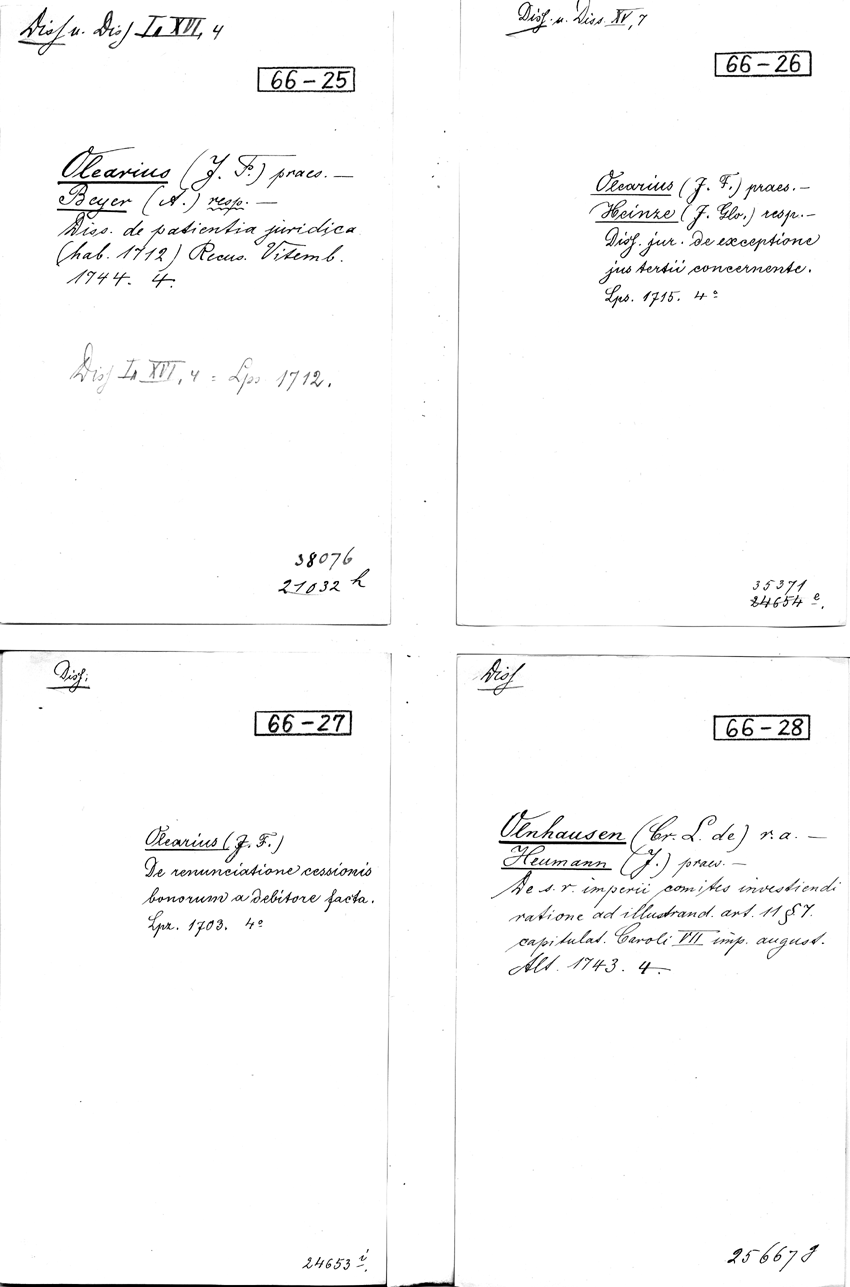 Diss u. Diss I, XVI, 4
66-25
Olearius (J. F.) praes. —
Beyer (A.) resp. —
Diss. de patientia juridica
(hab. 1712) Recus. Vitemb.
1744. 4.
Diss I, XVI, 4 = Lps 1712.
38076
21032 h
Diss. u. Diss. XV, 7
66-26
Olearius (J. F.) praes. —
Heinze (J. Glo.) resp. —
Diss. jur. de exceptione
jus tertii concernente.
Lps. 1715. 4°
35371
24654 e.
Diss.
66-27
Olearius (J. F.)
De renunciatione cessionis
bonorum a debitore facta.
Lpz. 1703. 4°
24653 i.
Diss
66-28
Olnhausen (Cr. L. de) r. a. —
Heumann (J.) praes. —
De s. r. imperii comites investiendi
ratione ad illustrand. art. 11 § 7.
capitulat. Caroli VII imp. august.
Alt. 1743. 4.
25667